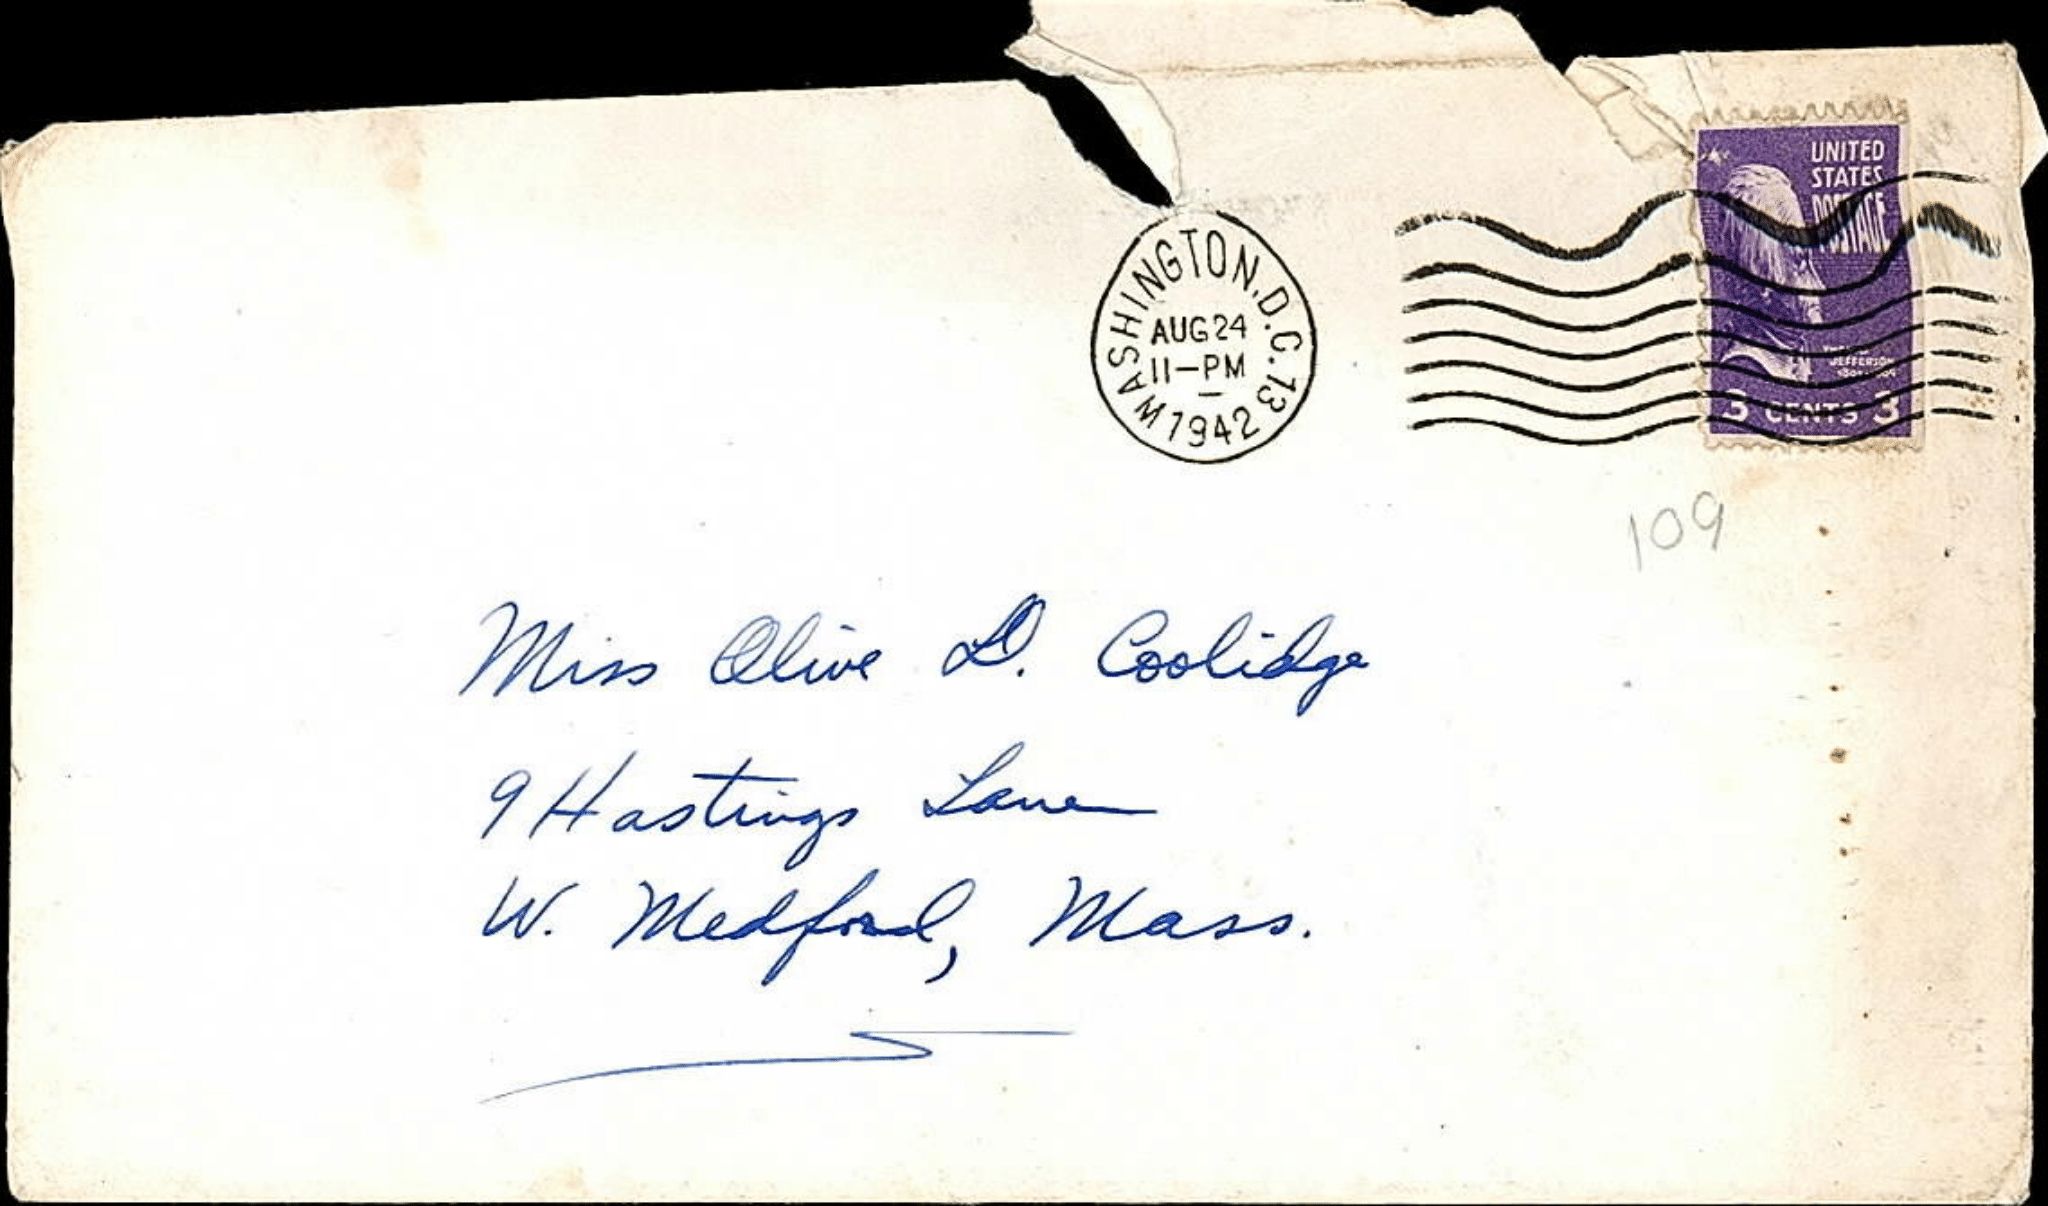 WASHINGTON, D.C. 13
AUG 24
11-PM
1942
UNITED
STATES
POSTAGE
JEFFERSON
3 CENTS 3
109
Miss Olive D. Coolidge
9 Hastings Lane
W. Medford, Mass.